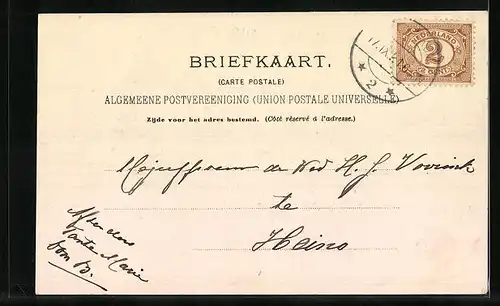 NEDERLAND
2
CENT
2
BRIEFKAART.
(CARTE POSTALE)
ALGEMEENE POSTVEREENIGING (UNION POSTALE UNIVERSELLE)
Zijde voor het adres bestemd. (Côté réservé à l'adresse.)
Mejuffrouw de Wed H. J. Vovinck
te
Heino
Tante Marie